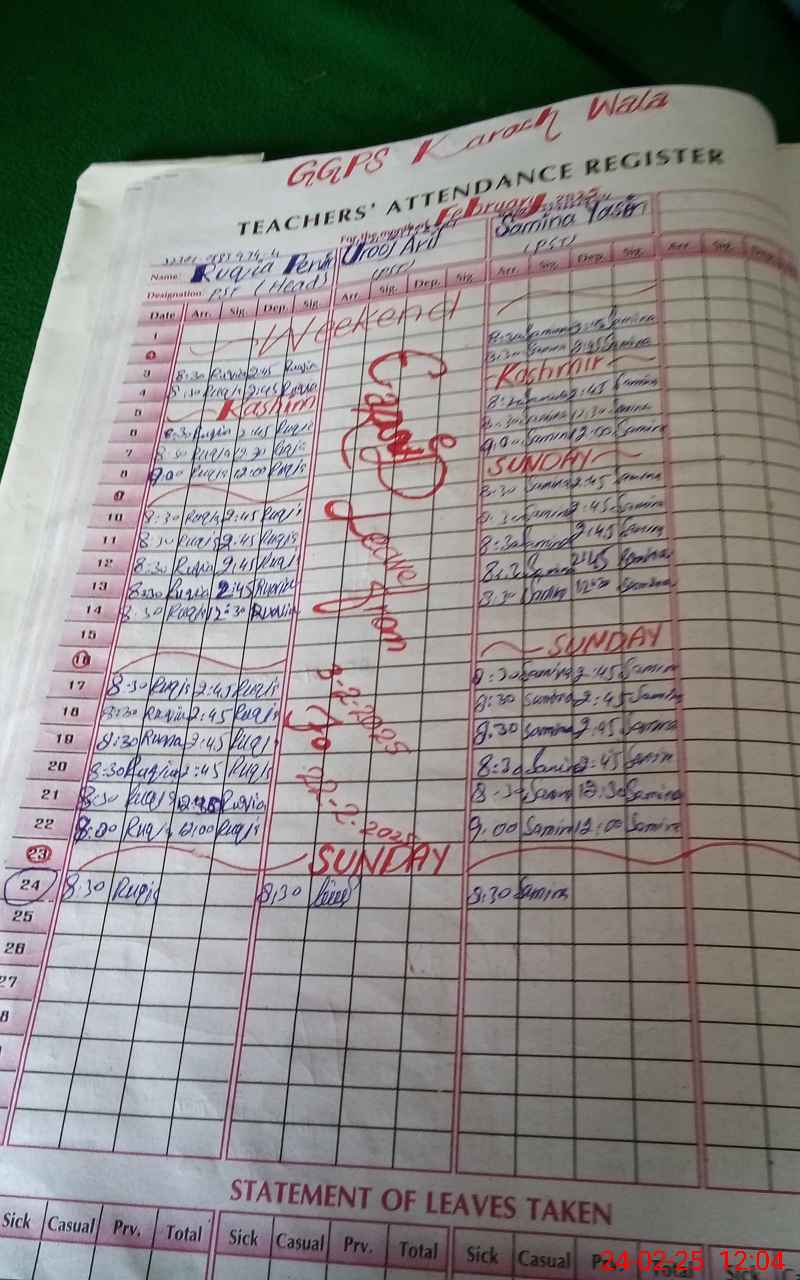 GGPS Karach Wala
TEACHERS' ATTENDANCE REGISTER
For the month of February 2025
Name: Ruqia Urooj Arif Samina Yasin
Designation: PST (Head) (PST) (PST)
Date Arr. Sig. Dep. Sig. Arr. Sig. Dep. Sig. Arr. Sig. Dep. Sig. Arr. Sig.
1 Weekend
2
3 8:30 Ruqia 2:45 Ruqia 8:30 Samina 2:45 Samina
4 8:30 Ruqia 2:45 Ruqia 8:30 Samina 2:45 Samina
5 Kashmir
6 8:30 Ruqia 2:45 Ruqia 8:30 Samina 2:45 Samina
7 8:30 Ruqia 12:30 Ruqia 8:30 Samina 12:30 Samina
8 9:00 Ruqia 12:00 Ruqia 9:00 Samina 12:00 Samina
9 SUNDAY
10 8:30 Ruqia 2:45 Ruqia 8:30 Samina 2:45 Samina
11 8:30 Ruqia 2:45 Ruqia 8:30 Samina 2:45 Samina
12 8:30 Ruqia 2:45 Ruqia 8:30 Samina 2:45 Samina
13 8:30 Ruqia 2:45 Ruqia 8:30 Samina 2:45 Samina
14 8:30 Ruqia 12:30 Ruqia 8:30 Samina 12:30 Samina
15
16 SUNDAY
17 8:30 Ruqia 2:45 Ruqia 8:30 Samina 2:45 Samina
18 8:30 Ruqia 2:45 Ruqia 8:30 Samina 2:45 Samina
19 8:30 Ruqia 2:45 Ruqia 8:30 Samina 2:45 Samina
20 8:30 Ruqia 2:45 Ruqia 8:30 Samina 2:45 Samina
21 8:30 Ruqia Ruqia 8:30 Samina 12:30 Samina
22 8:00 Ruqia 12:00 Ruqia 9:00 Samina 12:00 Samina
Leave from
3-2-2025
To
22-2-2025
23 SUNDAY
24 8:30 Ruqia 8:30 8:30 Samina
25
26
27
STATEMENT OF LEAVES TAKEN
Sick Casual Prv. Total Sick Casual Prv. Total Sick Casual Prv. Total
24-02-25 12:04